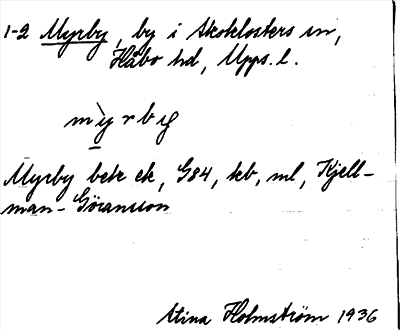 1-2 Myrby, by i Skoklosters sn,
Håbo hd, Upps. l.
mỳrby
Myrby betr ek, G84, kb, ml, Kjell-
man-Göransson
Stina Holmström 1936